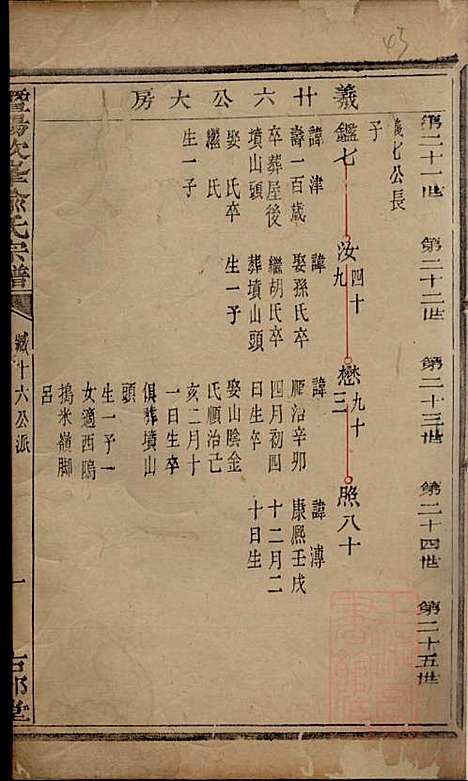 43
第二十一世 第二十二世 第二十三世 第二十四世 第二十五世
義七公長
子
義廿六公大房
鑑七 汝四十九 懋九十三 熙八十
諱津
壽一百歲
卒葬屋後
墳山頭
娶氏卒
繼氏
生一子
諱
娶孫氏卒
繼胡氏卒
葬墳山頭
生一子
諱
順治辛卯
四月初四
日生卒
娶山陰金
氏順治己
亥二月十
一日生卒
俱葬墳山
頭
生一子一
女適西塢
搗米嶺脚
呂
諱溥
康熙壬戌
十二月二
十日生
暨陽次峯俞氏宗譜
臧十六公派
一